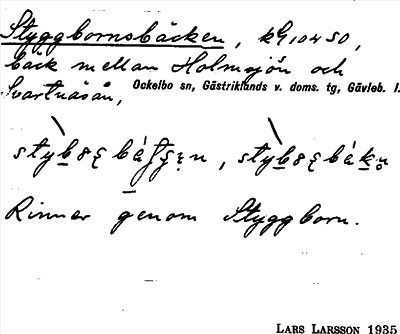 Styggbornsbäcken, kG 10450,
bäck mellan Holmsjön och
Svartnäsån, Ockelbo sn, Gästriklands v. doms. tg, Gävleb. l.
Rinner genom Styggborn.
LARS LARSSON 1935